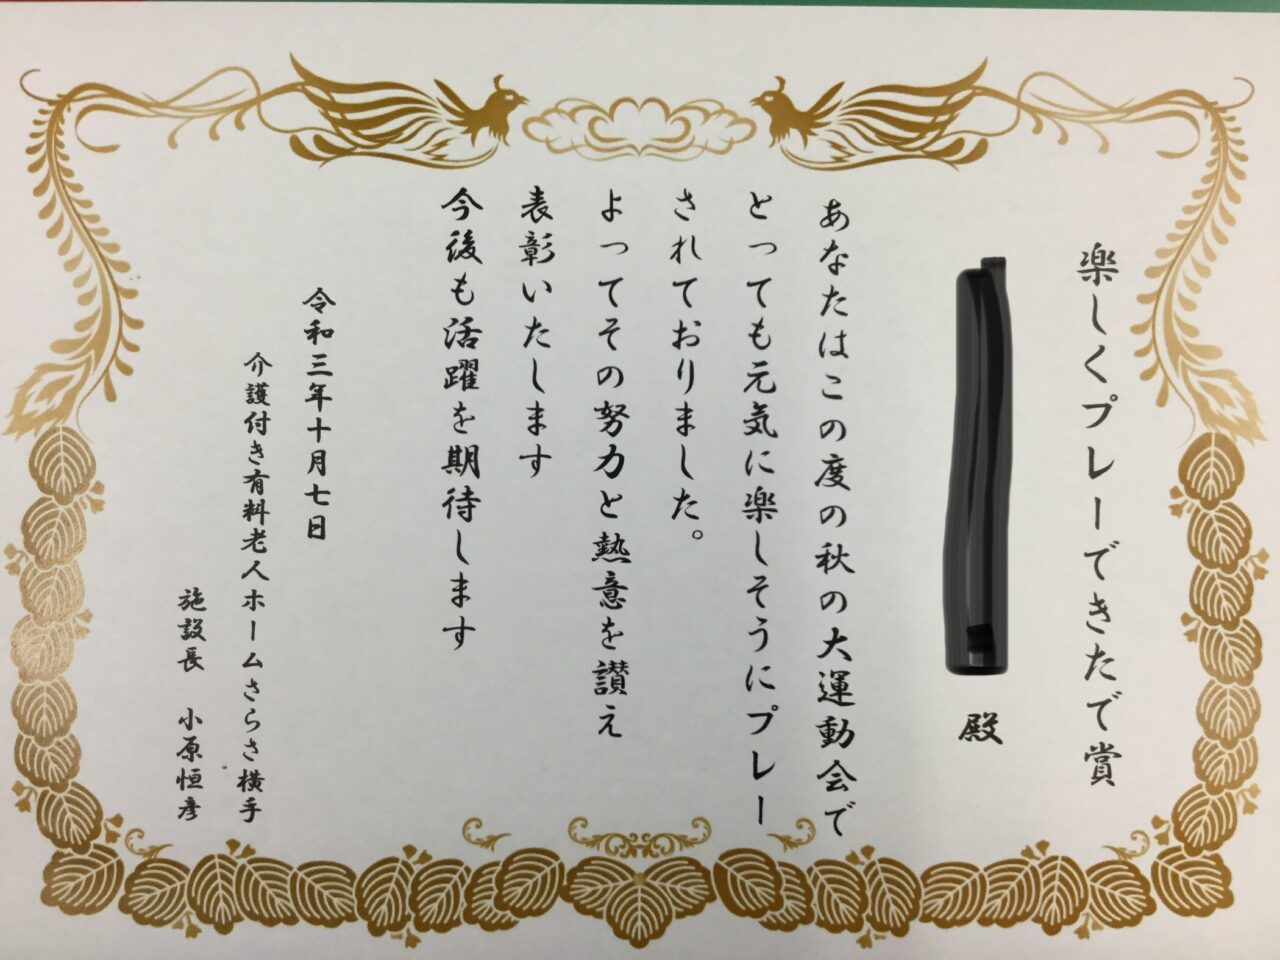 楽しくプレーできたで賞
殿
あなたはこの度の秋の大運動会で
とっても元気に楽しそうにプレー
されておりました。
よってその努力と熱意を讃え
表彰いたします
今後も活躍を期待します
令和三年十月七日
介護付き有料老人ホームさらさ横手
施設長 小原恒彦